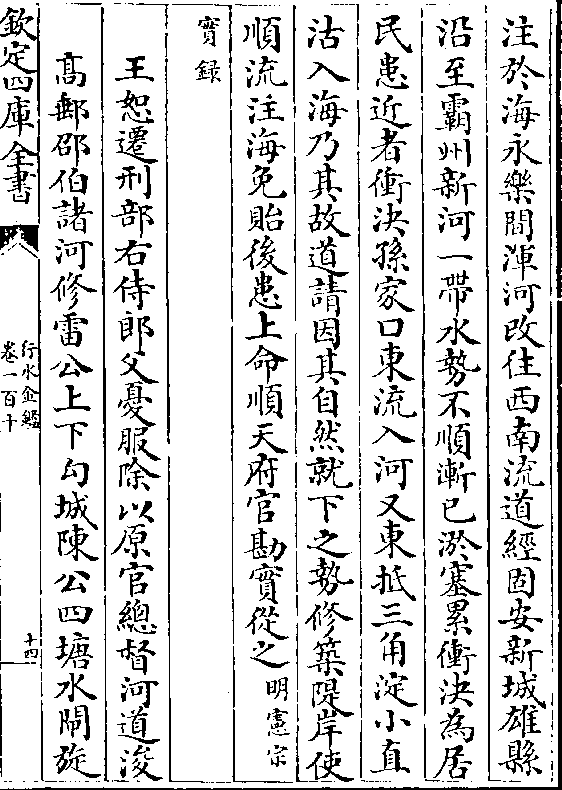 注於海永樂間渾河改往西南流道經固安新城雄縣
沿至霸州新河一帶水勢不順漸已淤塞累衝決為居
民患近者衝決孫家口東流入河又東抵三角淀小直
沽入海乃其故道請因其自然就下之勢修築隄岸使
順流注海免貽後患上命順天府官勘實從之明憲宗
實録
王恕遷刑部右侍郎父憂服除以原官總督河道浚
髙郵邵伯諸河修雷公上下勾城陳公四塘水閘旋
欽定四庫全書
行水金鑑
卷一百十
十四